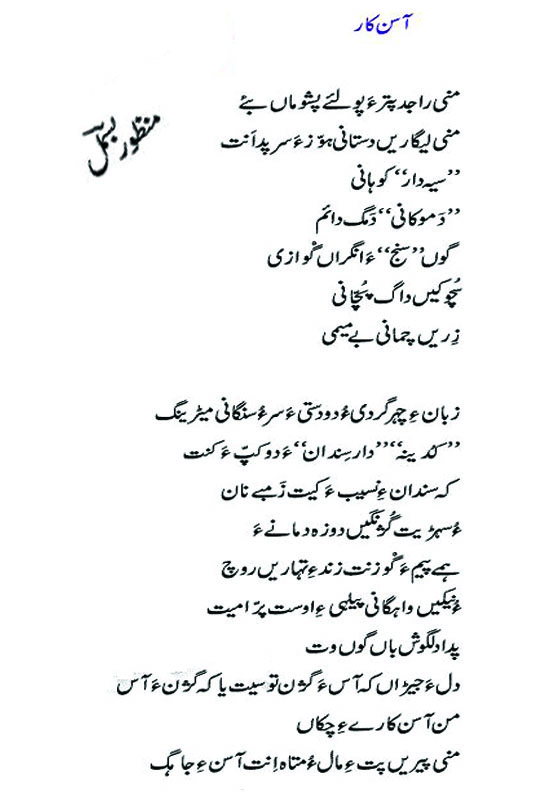 آسن کار
منی راجد پترءَ پولئے پشوماں بئے
منظور بسمل
منی لیگاریں دستانی ہوّزءَ سرپداَنت
”سیہ دار“ کوہانی
”دَموکانی“ دَمگ دائم
گوں ”سنج“ ءَ انگراں گوازی
سُچوکیں داگ پُچّانی
زِریں چمانی بے میمی
زبان ءِ چہرگردی ءُ دودستی ءَ سرءُ سنگانی میٹرینگ
”کدینہ“ ”دارسِندان“ ءَ دوکپّ ءَ کنت
کہ سندان ءِ نسیب ءَ کیت زَمبے نان
ءُ سہڑیت گژنگیں دوزہ دمانے ءَ
ہمے پیم ءَ گوزنت زندءِ تہاریں روچ
ءُ نیکیں واہگانی پیلہی ءِ اوست پرّ امیت
پدا دلگوش باں گوں وت
دل ءَ جیڑاں کہ آس ءَ گژن توسیت یا کہ گژن ءَ آس
من آسن کارے ءِ چکاں
منی پیریں پت ءِ مال ءُ متاہ اِنت آسن ءِ جاہگ